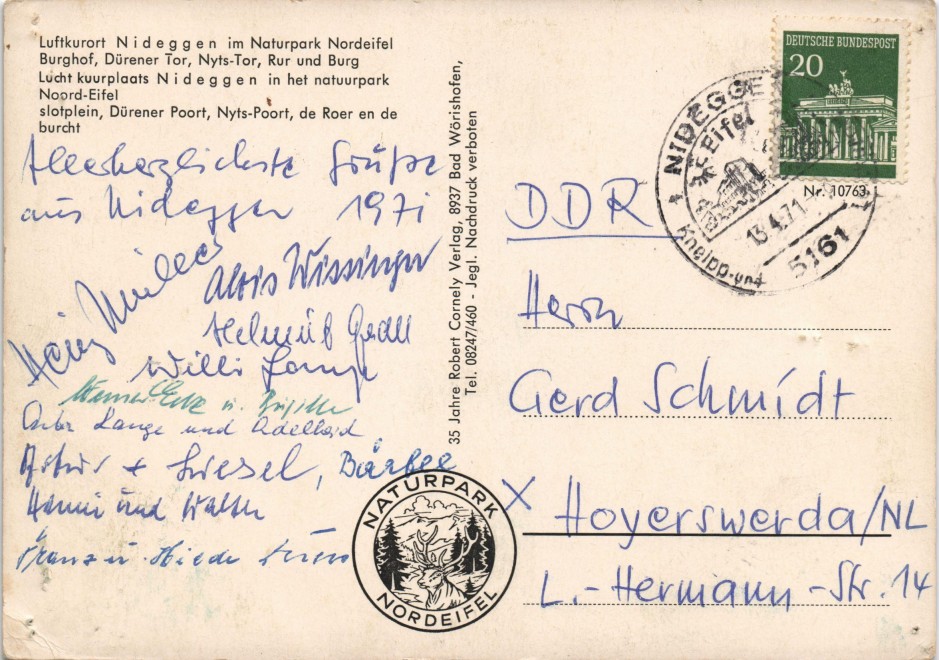 Luftkurort Nideggen im Naturpark Nordeifel
Burghof, Dürener Tor, Nyts-Tor, Rur und Burg
Lucht kuurplaats Nideggen in het natuurpark
Noord-Eifel
slotplein, Dürener Poort, Nyts-Poort, de Roer en de
burcht
Allerherzlichste Grüße
aus Nideggen 1971
Heinz Müller
Alois Wissinger
Helmut
Willi Lange
Werner u.
Lange und Adelheid
+ Liesel, Bärbel
Hanni und Walter
Franz u.
35 Jahre Robert Cornely Verlag, 8937 Bad Wörishofen,
Tel. 08247/460 - Jegl. Nachdruck verboten
NATURPARK
NORDEIFEL
DEUTSCHE BUNDESPOST
20
NIDEGGEN
Eifel
13.4.71
5161
Kneipp- und
Nr. 10763
DDR
Herrn
Gerd Schmidt
X Hoyerswerda/NL
L.-Hermann-Str. 14